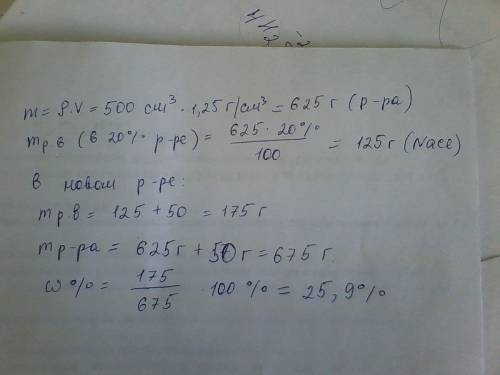 m = ρ.V = 500 см³ · 1,25 г/см³ = 625 г (р-ра)
mр в (в 20% р-ре) = 625 · 20% / 100 = 125 г (NaCl)
в новом р-ре:
mр в = 125 + 50 = 175 г
mр-ра = 625 г + 50 г = 675 г.
ω% = 175 / 675 · 100 % = 25,9%